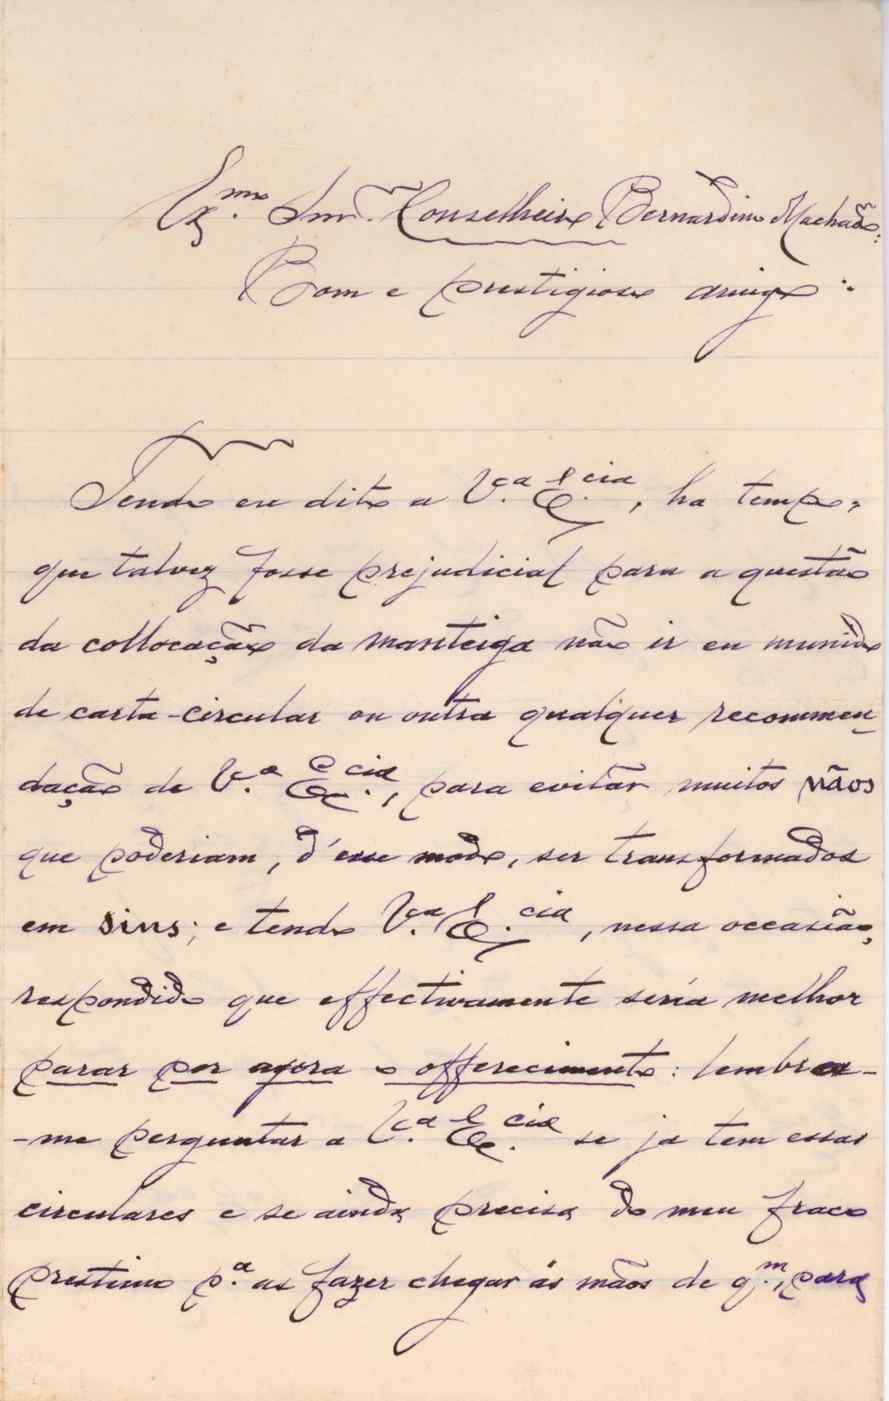 Ex.mo Snr. Conselheiro Bernardino Machado:
Bom e prestigioso amigo:
Tendo eu dito a V.ª Ex.cia, ha tempo,
que talvez fosse prejudicial para a questão
da collocação da manteiga não ir eu munido
de carta-circular ou outra qualquer recommen-
dação de V.ª Ex.cia, para evitar muitos nãos
que poderiam, d'esse modo, ser transformados
em sins; e tendo V.ª Ex.cia, nessa occasião,
respondido que effectivamente seria melhor
parar por agora o offerecimento: lembra-
-me perguntar a V.ª Ex.cia se ja tem essas
circulares e se ainda precisa do meu fraco
prestimo p.ª as fazer chegar ás mãos de q.m, para